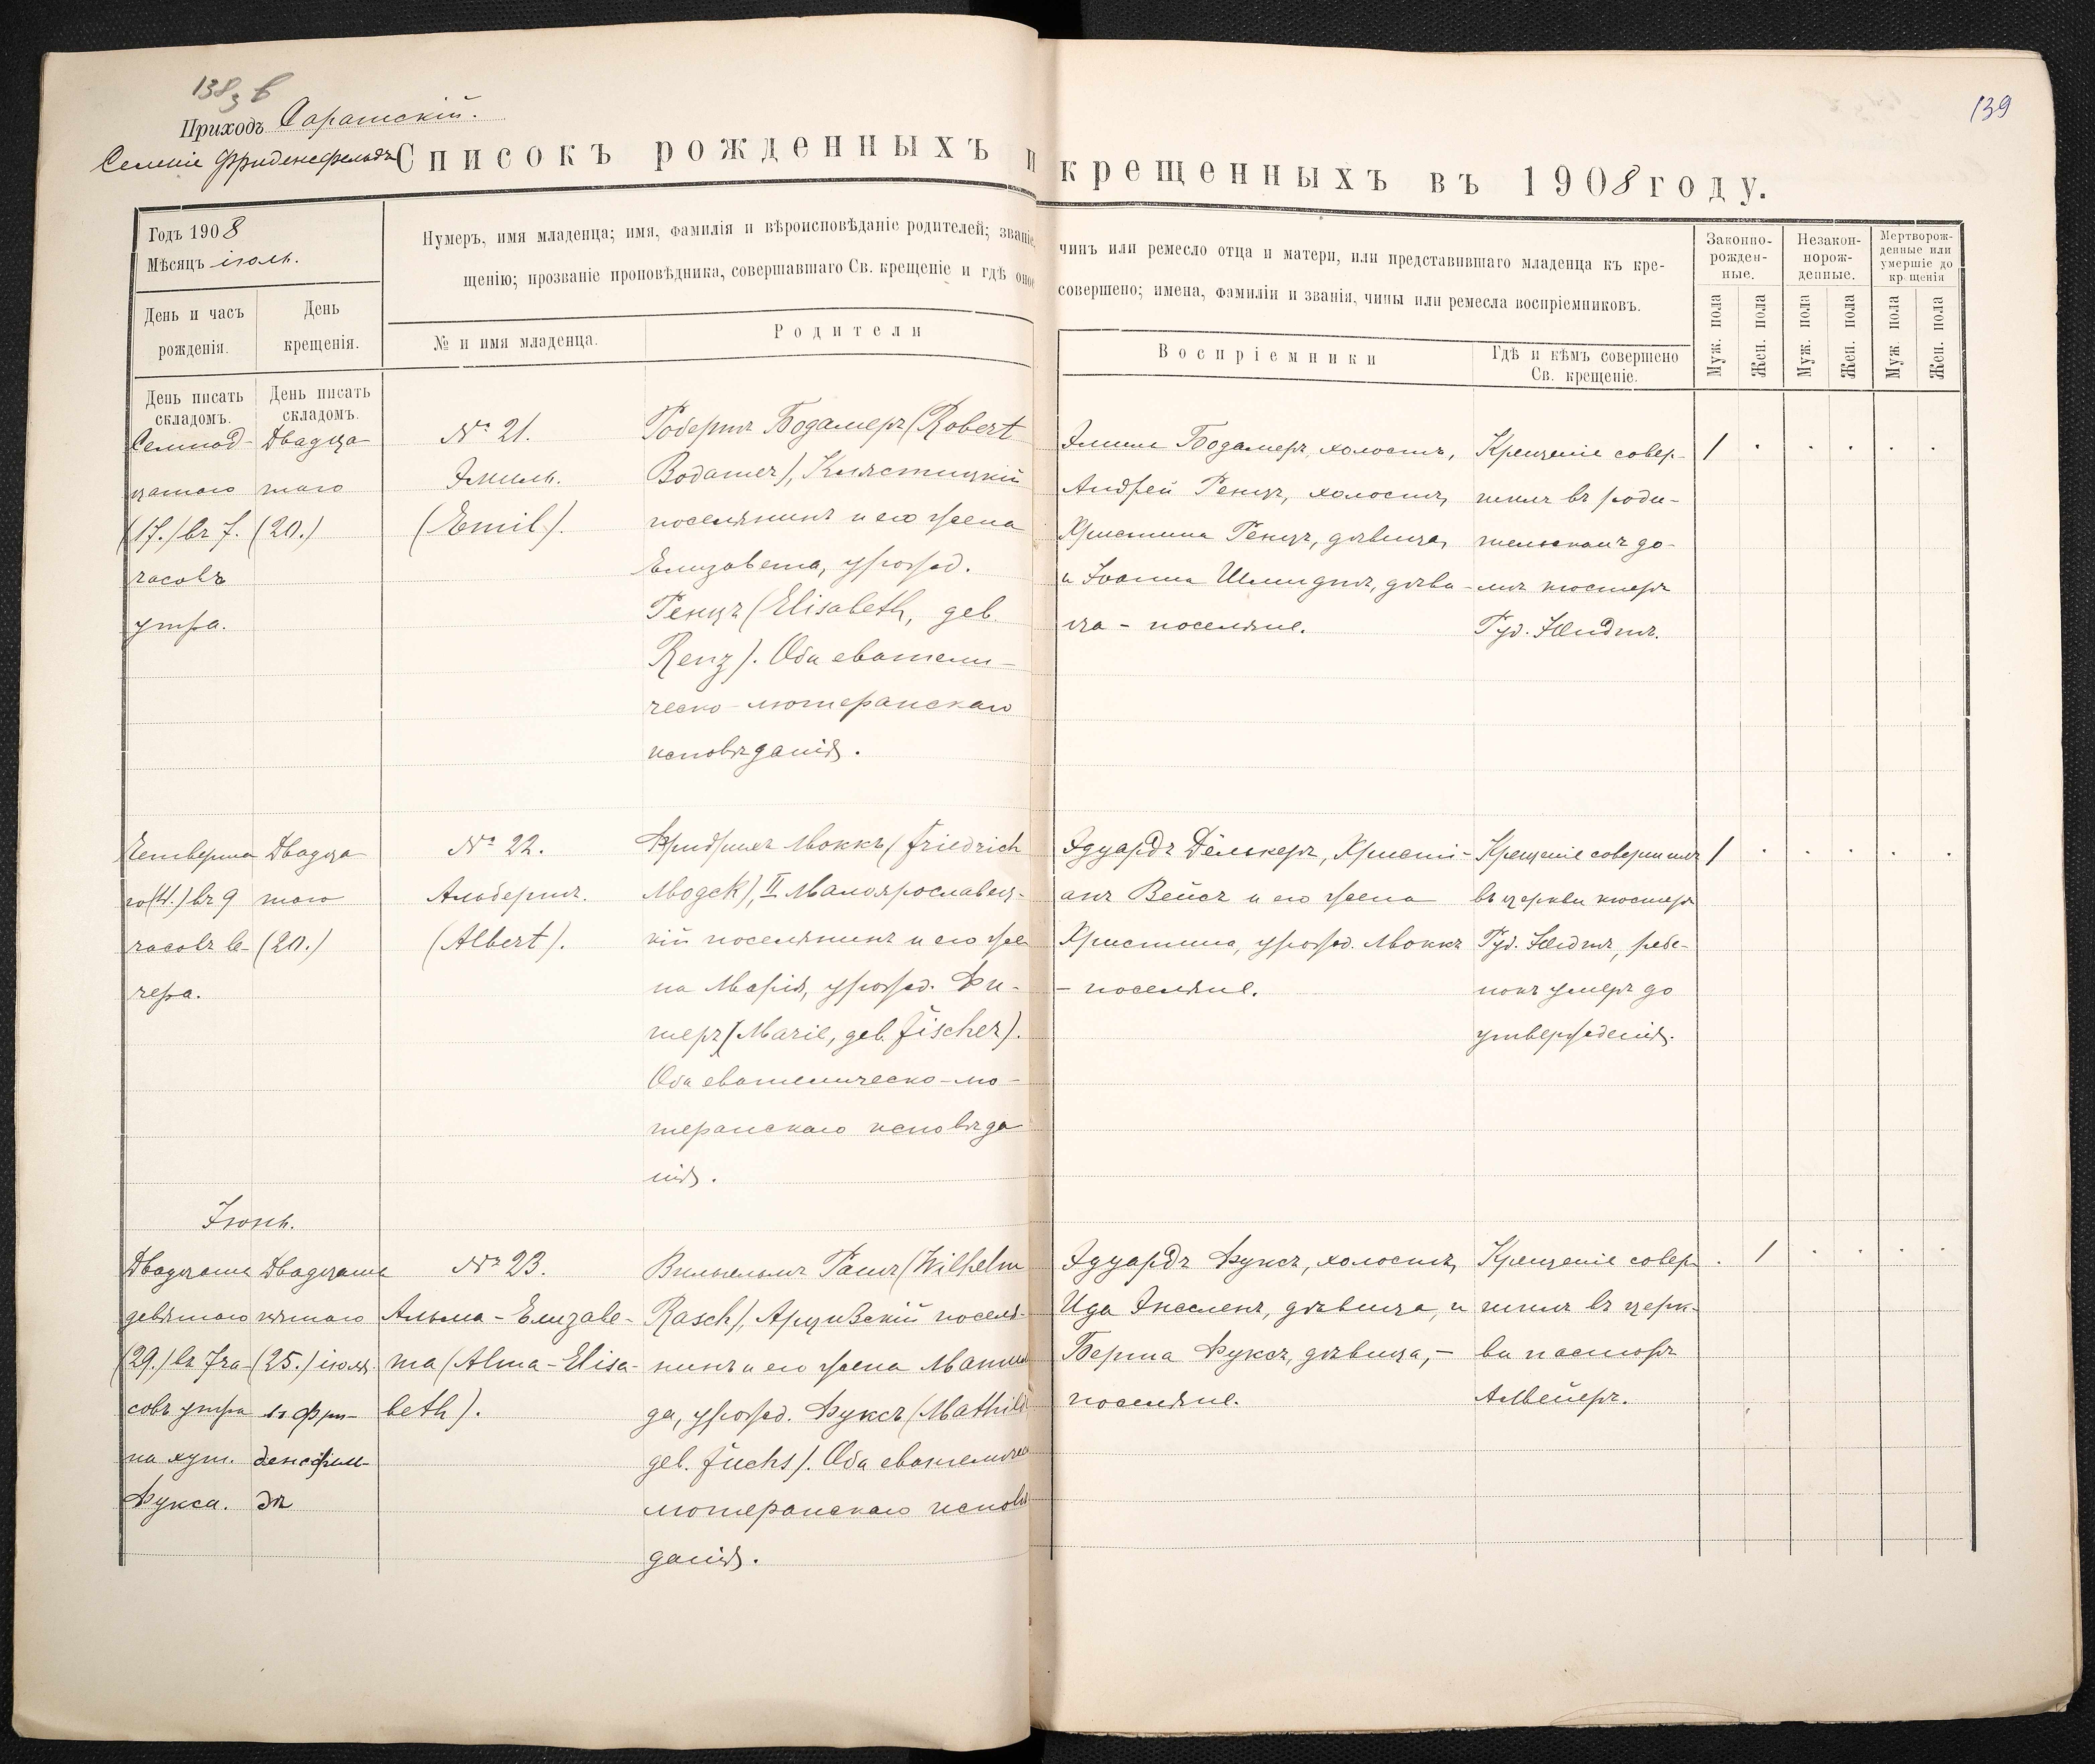 138 з в
139
Приходъ Саратскій.
Селеніе Фриденсфельдъ
Списокъ рожденныхъ и крещенныхъ въ 1908 году.
Годъ 1908
Мѣсяцъ іюль.
День и часъ рожденія.
День крещенія.
Нумеръ, имя младенца; имя, фамилія и вѣроисповѣданіе родителей; званіе, чинъ или ремесло отца и матери, или представившаго младенца къ кре-
щенію; прозваніе проповѣдника, совершавшаго Св. крещеніе и гдѣ оное совершено; имена, фамиліи и званія, чины или ремесла воспріемниковъ.
№ и имя младенца.
Родители
Воспріемники
Гдѣ и кѣмъ совершено
Св. крещеніе.
Законно-
рожден-
ные.
Незакон-
норож-
денные.
Мертворож-
денные или
умершіе до
крещенія
Муж. пола
Жен. пола
Муж. пола
Жен. пола
Муж. пола
Жен. пола
День писать
складомъ.
День писать
складомъ.
Семнад-
цатаго
(17.) въ 7.
часовъ
утра.
Двадца
таго
(20.)
№ 21.
Эмиль.
(Emil).
Робертъ Бодамеръ (Robert
Bodamer), Клястицкій
поселянинъ и его жена
Елизавета, урожд.
Ренцъ (Elisabeth, geb.
Renz). Оба евангели-
ческо-лютеранскаго
исповѣданія.
Эмиль Бодамеръ, холостъ,
Андрей Ренцъ, холостъ,
Христина Ренцъ, дѣвица,
и Іоанна Шмидтъ, дѣви-
ца - поселяне.
Крещеніе совер-
шилъ въ роди-
тельскомъ до-
мѣ кюстеръ
Гус. Юндтъ.
1 . . . . .
Четверта
го (4.) въ 9
часовъ ве-
чера.
Двадца
таго
(20.)
№ 22.
Альбертъ.
(Albert).
Фридрихъ Моккъ (Friedrich
Mogck), II Малоярославец-
кій поселянинъ и его же
на Марія, урожд. Фи-
шеръ (Marie, geb. Fischer).
Оба евангелическо-лю-
теранскаго исповѣда
нія.
Эдуардъ Дёлькеръ, Христі-
анъ Вейсъ и его жена
Христина, урожд. Моккъ
- поселяне.
Крещеніе совершилъ
въ церкви кюстеръ
Гус. Юндтъ, ребе-
нокъ умеръ до
утвержденія.
1 . . . . .
Іюнь.
Двадцать
девятаго
(29.) въ 7 ча-
совъ утра
на хут.
Фукса.
Двадцать
пятаго
(25.) іюля
въ Фри-
денсфель-
дѣ
№ 23.
Альма-Елизаве-
та (Alma-Elisa-
beth).
Вильгельмъ Рашъ (Wilhelm
Rasch), Арцизскій поселя-
нинъ и его жена Матиль
да, урожд. Фуксъ (Mathild
geb. Fuchs). Оба евангеличес
лютеранскаго исповѣ
данія.
Эдуардъ Фуксъ, холостъ,
Ида Энсленъ, дѣвица, и
Берта Фуксъ, дѣвица, -
поселяне.
Крещеніе совер-
шилъ въ церк-
ви пасторъ
А. Мейеръ.
. 1 . . . .